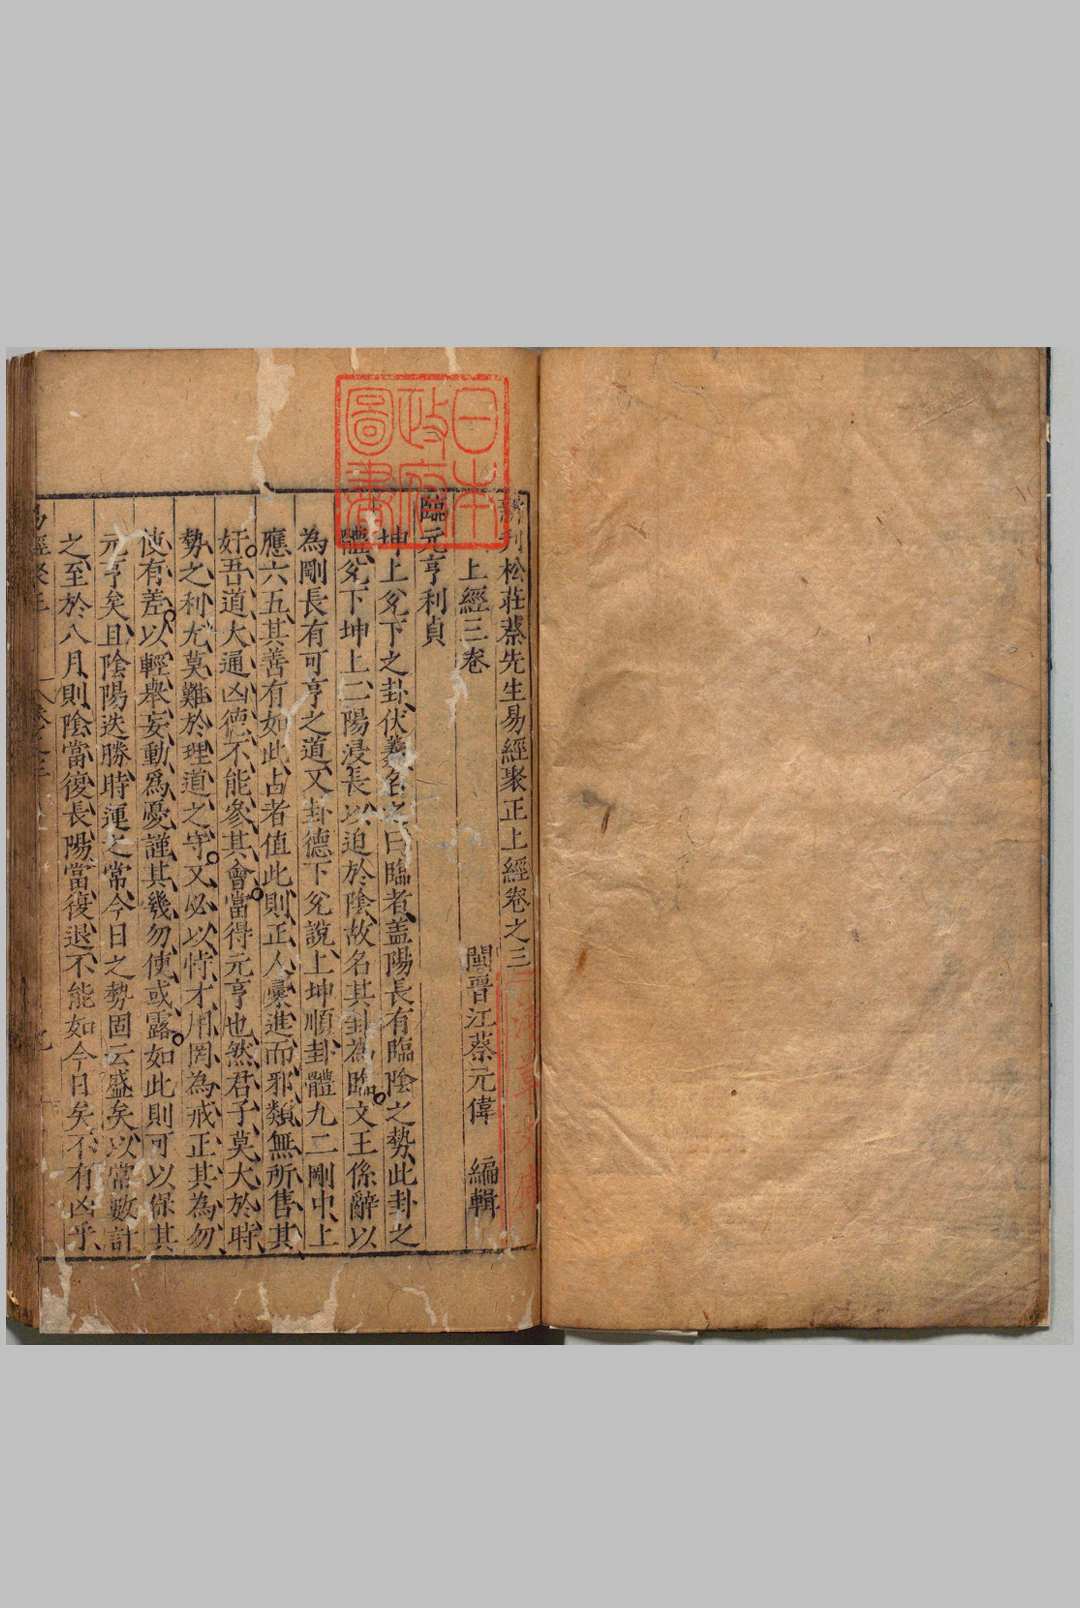 新刋松莊蔡先生易經聚正上經卷之三
上經三卷
閩晋江蔡元偉 編輯
臨元亨利貞
坤上兊下之卦伏羲名之曰臨者盖陽長有臨陰之勢此卦之
體兊下坤上二陽浸長以迫於陰故名其卦為臨文王係辭以
為剛長有可亨之道又卦德下兊說上坤順卦體九二剛中上
應六五其善有如此占者值此則正人彚進而邪類無所售其
奸吾道大通凶德不能參其會當得元亨也然君子莫大於時
勢之利尤莫難於理道之守又必以恃才用罔為戒正其為勿
使有差以輕舉妄動爲憂謹其幾勿使或露如此則可以保其
元亨矣且陰陽迭勝時運之常今日之勢固云盛矣以常數計
之至於八月則陰當復長陽當復退不能如今日矣不有凶乎
日本
政府
圖書